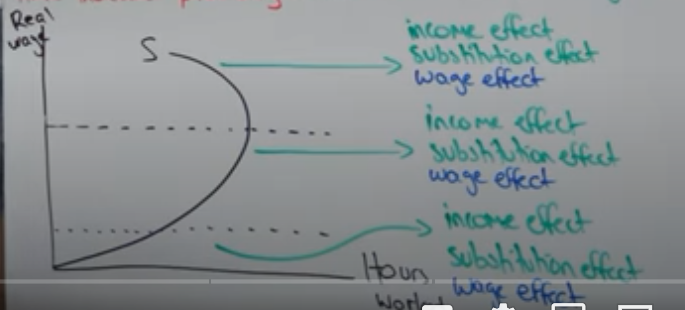 Real
wage
S
income effect
substitution effect
wage effect
income effect
substitution effect
wage effect
income effect
substitution effect
wage effect
Hours